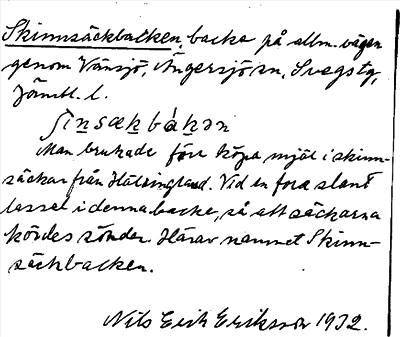 Skinnsäckbacken, backe på allm. vägen
genom Vänsjö, Ängersjö sn, Svegs tg,
Jämtl. l.
ʃin̲sæk̲bàk̲ən
Man brukade förr köpa mjöl i skinn-
säckar från Hälsingland. Vid en fora slant
lasset i denna backe, så att säckarna
kördes sönder. Härav namnet Skinn-
säckbacken.
Nils Erik Eriksson 1932.